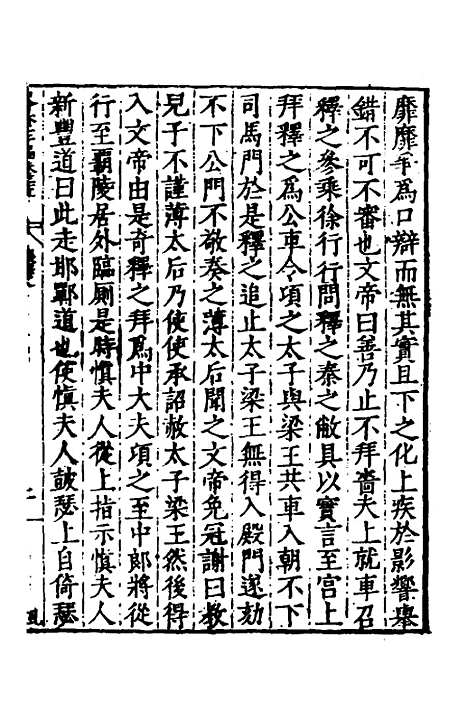 靡靡爭爲口辯而無其實且下之化上疾於影響舉
錯不可不審也文帝曰善乃止不拜嗇夫上就車召
釋之參乘徐行行問釋之秦之敝具以實言至宮上
拜釋之爲公車令項之太子與梁王共車入朝不下
司馬門於是釋之追止太子梁王無得入殿門遂劾
不下公門不敬奏之薄太后聞之文帝免冠謝曰教
兒子不謹薄太后乃使使承詔赦太子梁王然後得
入文帝由是奇釋之拜爲中大夫項之至中郎將從
行至霸陵居外臨厠是時慎夫人從上指示慎夫人
新豐道曰此走邯鄲道也使慎夫人鼓瑟上自倚瑟